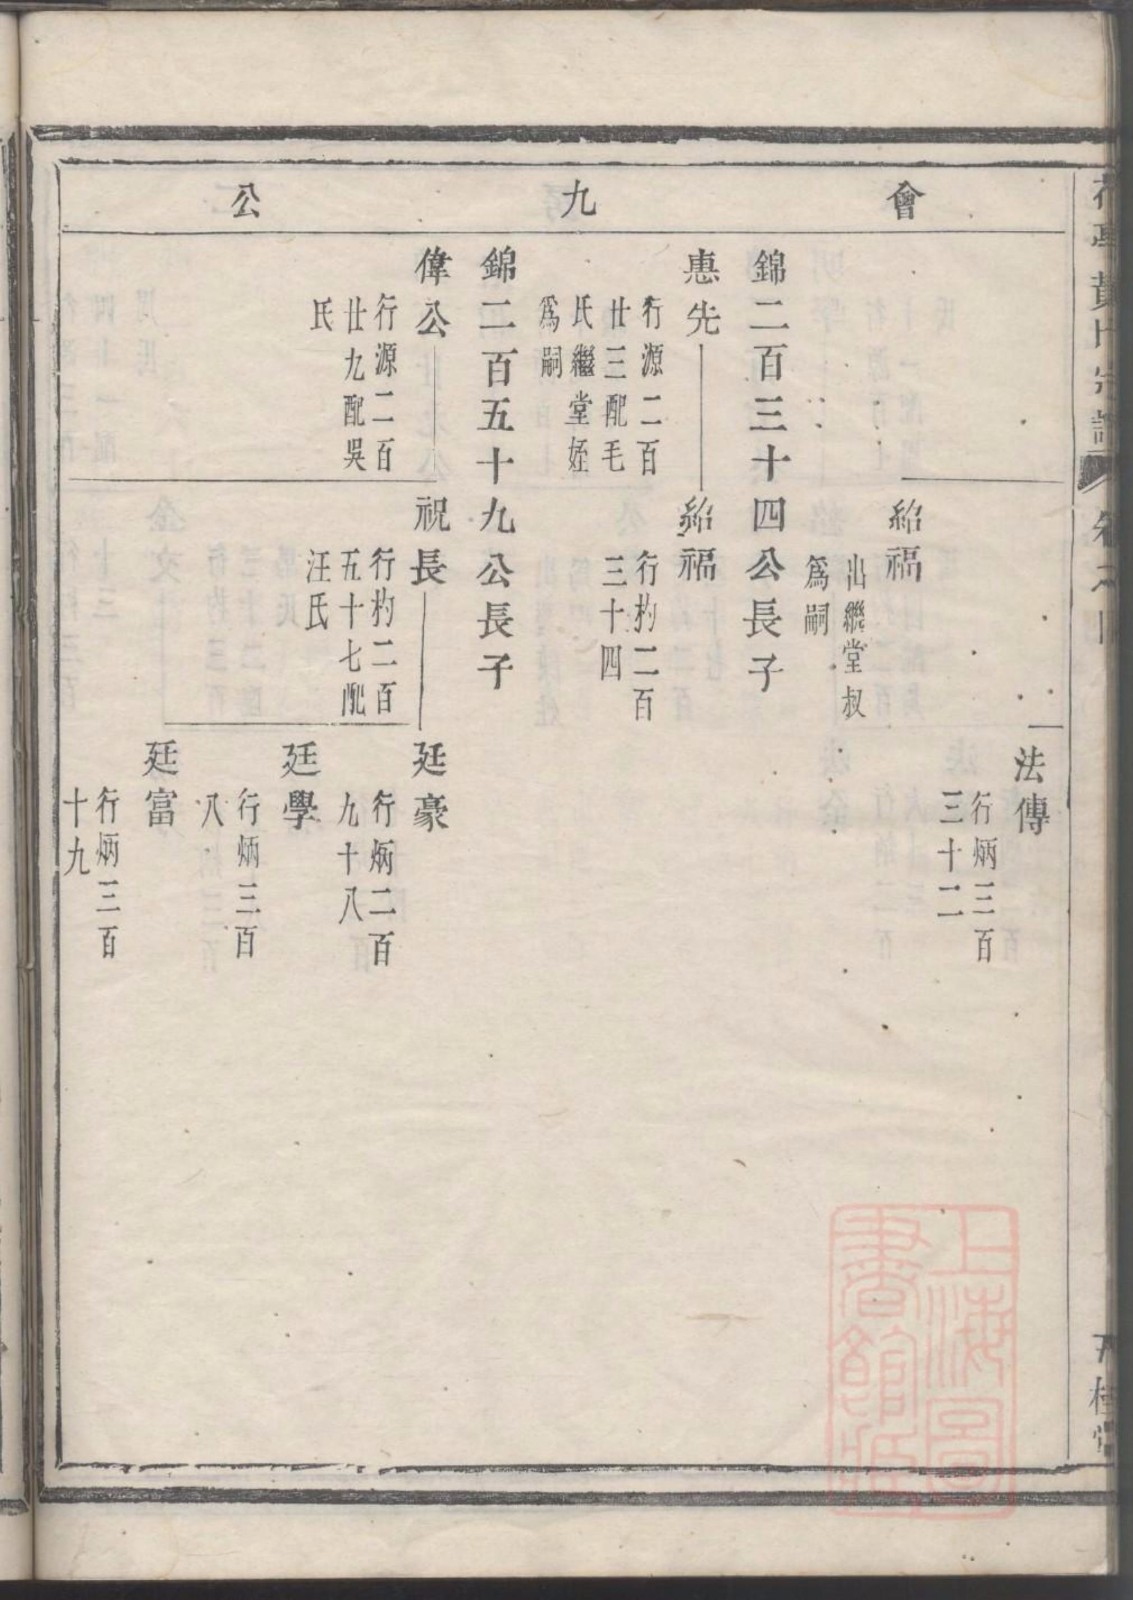 會九公
法傳
行炳三百
三十二
紹福
出繼堂叔
為嗣
錦二百三十四公長子
惠先
行源二百
廿三配毛
氏繼堂姪
為嗣
紹福
行杓二百
三十四
錦二百五十九公長子
偉公
行源二百
廿九配吳
氏
祝長
行杓二百
五十七配
汪氏
廷豪
行炳二百
九十八
廷學
行炳三百
八
廷富
行炳三百
十九
上海圖
書館藏